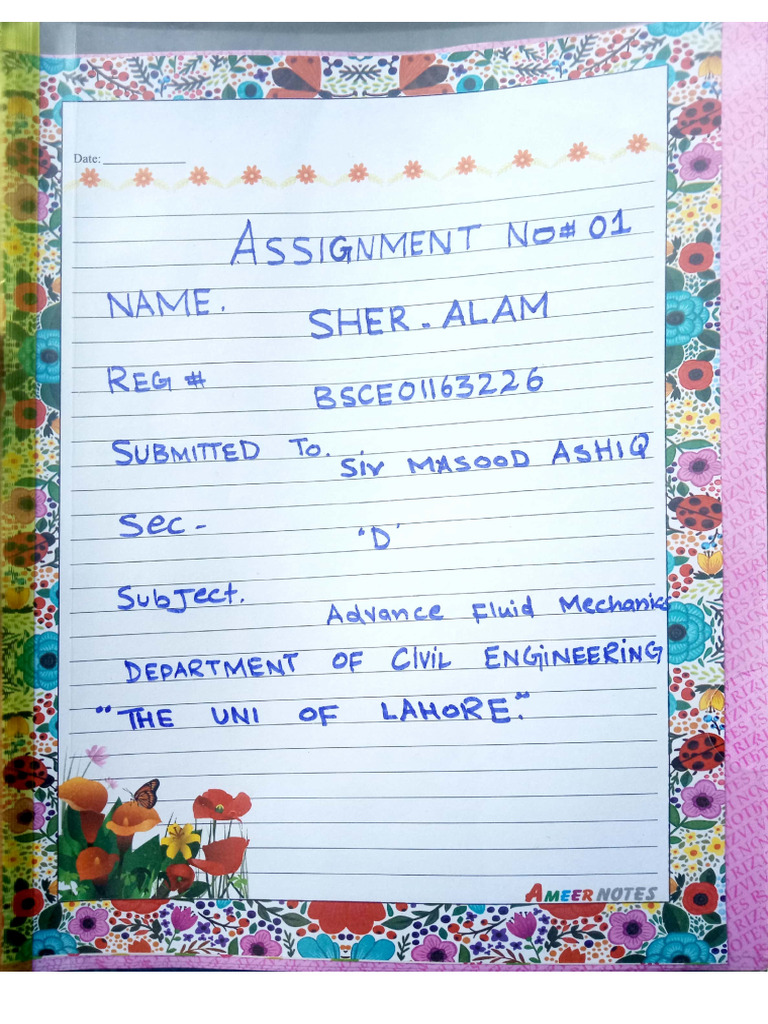 Date:
ASSIGNMENT No# 01
NAME.
SHER-ALAM
REG #
BSCE01163226
SUBMITTED To.
Sir MASOOD ASHIQ
Sec-
'D'
Subject.
Advance Fluid Mechanics
DEPARTMENT OF Civil ENGiNEERing
"THE UNI OF LAHORE."
AMEER NOTES